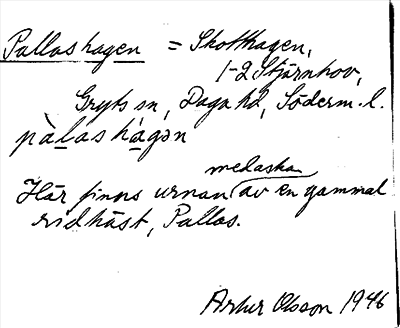 Pallashagen = Skotthagen,
1-2 Stjärnhov,
Gryts sn, Daga hd, Söderm. l.
pàlashàgən
Här finns urnan med aska av en gammal
ridhäst, Pallas.
Artur Olsson 1946